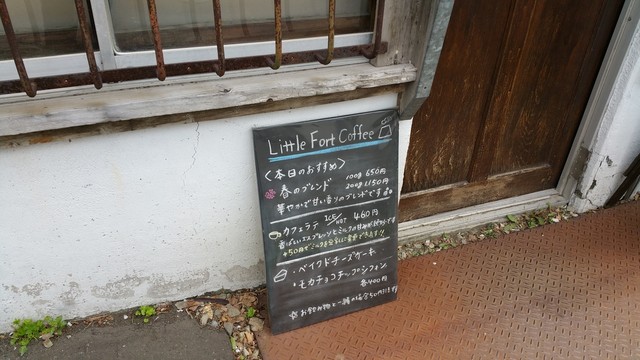 Little Fort Coffee
〈本日のおすすめ〉
春のブレンド 100g 650円
200g 1150円
華やかで甘い香りのブレンドです
カフェラテ ICE/HOT 460円
香ばしいエスプレッソとミルクの甘みが
+50円で
・ベイクドチーズケーキ
・モカチョコチップシフォン
各400円
☆お飲み物と一緒の場合50円引き